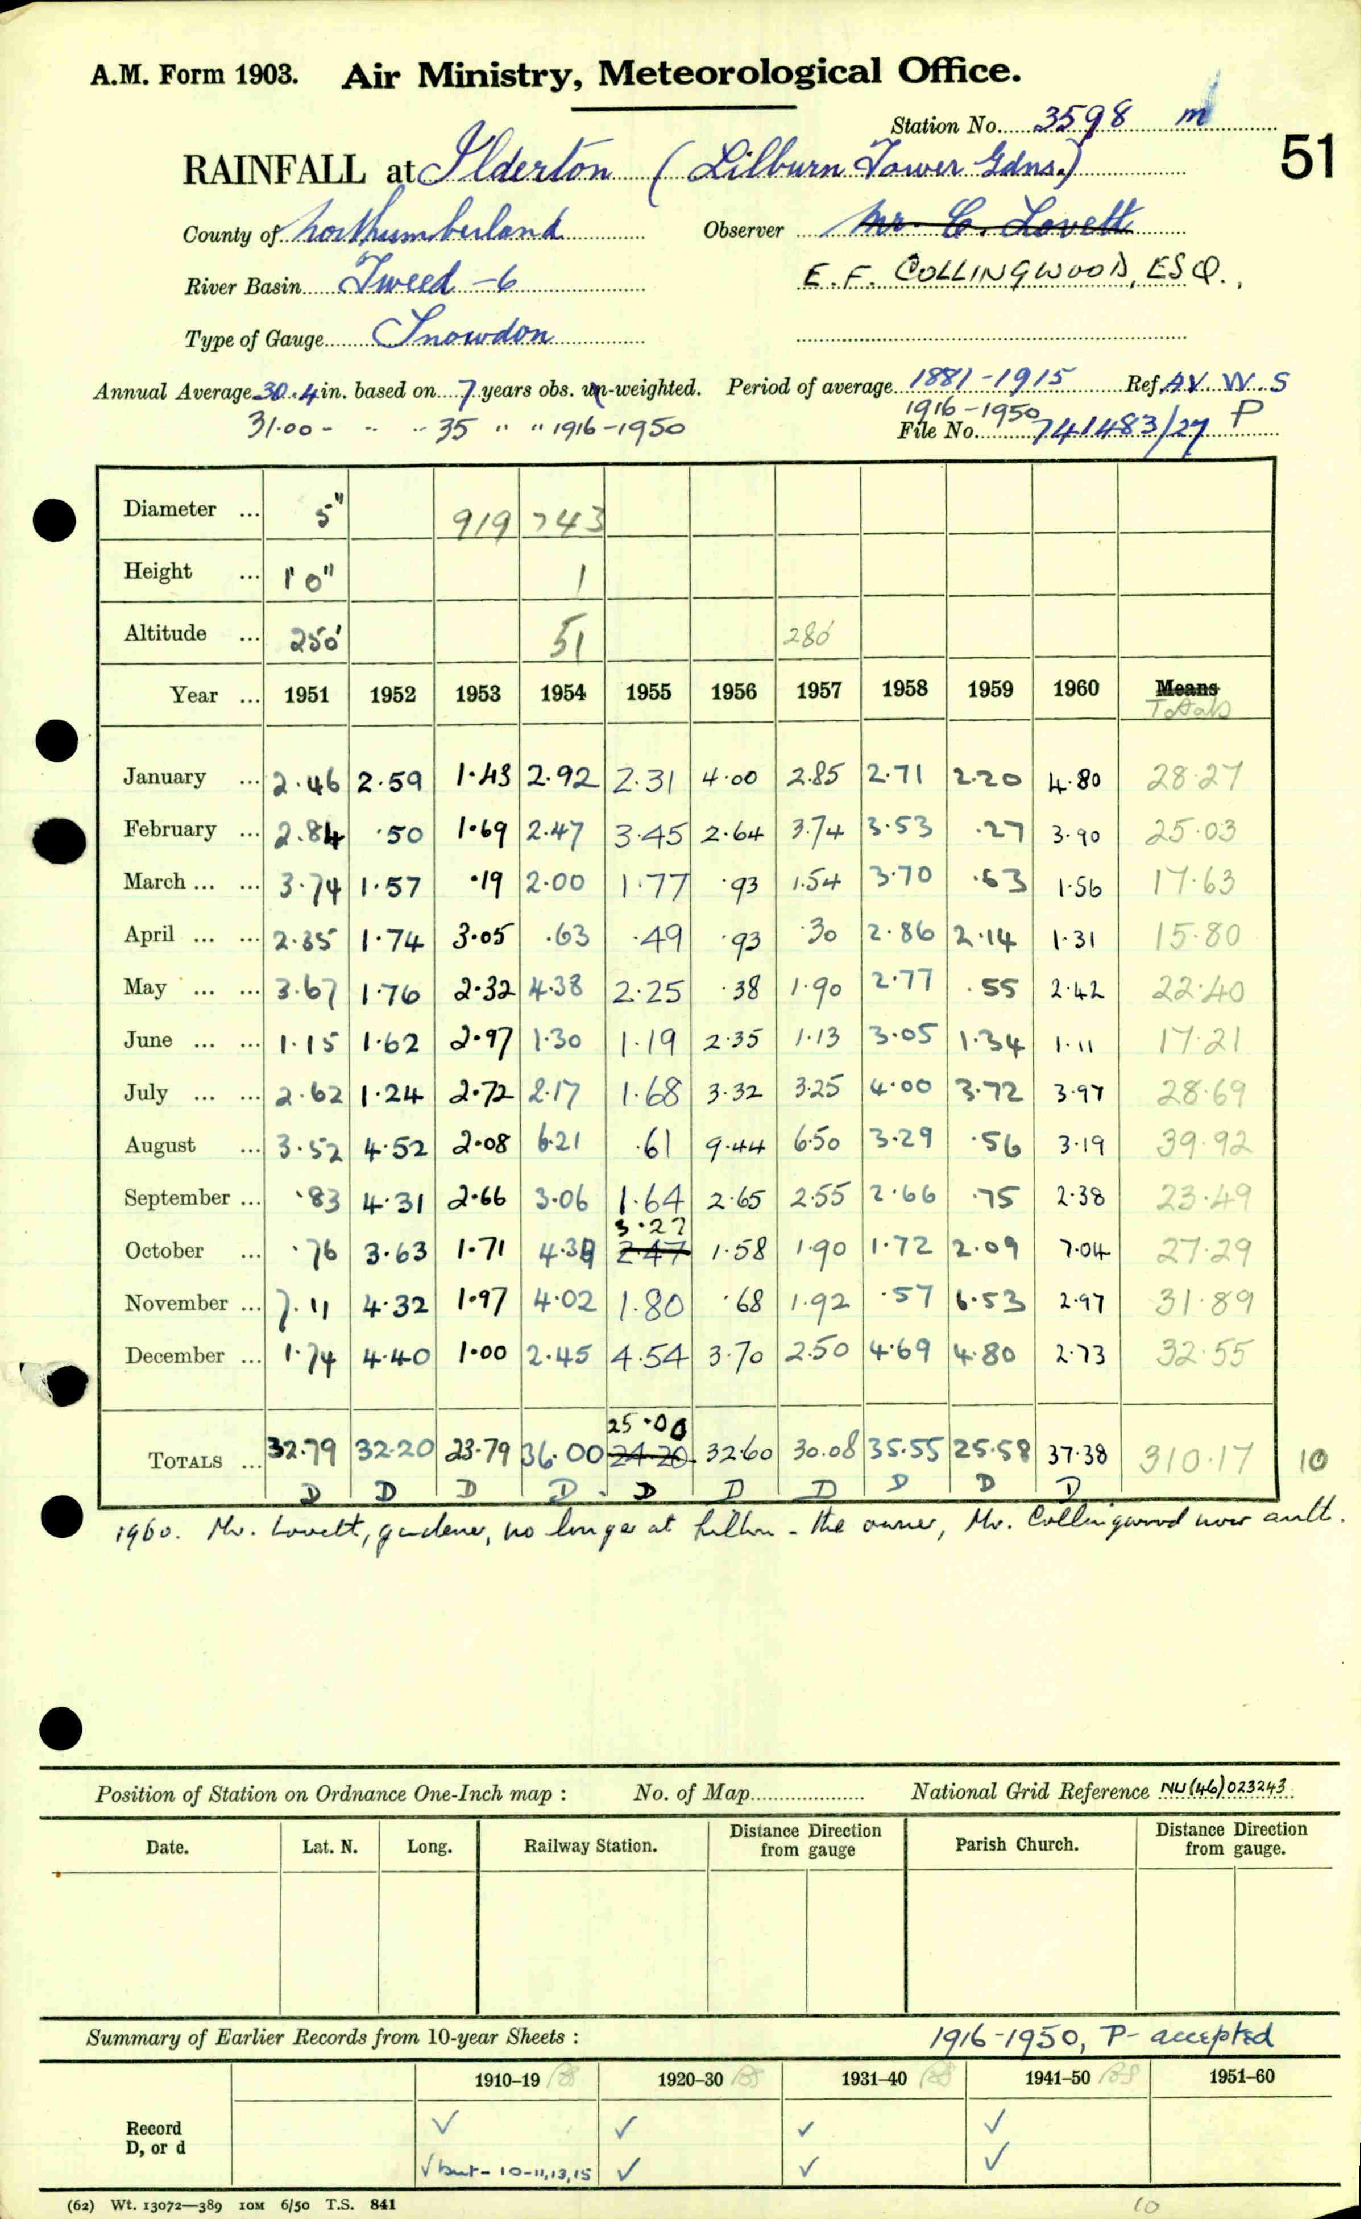 A.M. Form 1903. Air Ministry, Meteorological Office.
Station No. 3598 m
51
RAINFALL at Ilderton (Lilburn Tower Gdns.)
County of Northumberland Observer Mr. C. Lovett
River Basin Tweed -6 E.F. COLLINGWOOD, ESQ.,
Type of Gauge Snowdon
Annual Average 30.4 in. based on 7 years obs. un-weighted. Period of average 1881-1915 Ref. AV. W. S
31.00 - " - 35 " " 1916-1950 1916-1950 File No. 741483/27 P
Diameter ... 5" 919 743
Height ... 1' 0" 1
Altitude ... 250' 51 280'
Year ... 1951 1952 1953 1954 1955 1956 1957 1958 1959 1960 Means Totals
January ... 2.46 2.59 1.43 2.92 2.31 4.00 2.85 2.71 2.20 4.80 28.27
February ... 2.84 .50 1.69 2.47 3.45 2.64 3.74 3.53 .27 3.90 25.03
March ... ... 3.74 1.57 .19 2.00 1.77 .93 1.54 3.70 .63 1.56 17.63
April ... ... 2.35 1.74 3.05 .63 .49 .93 .30 2.86 2.14 1.31 15.80
May ... ... 3.67 1.76 2.32 4.38 2.25 .38 1.90 2.77 .55 2.42 22.40
June ... ... 1.15 1.62 2.97 1.30 1.19 2.35 1.13 3.05 1.34 1.11 17.21
July ... ... 2.62 1.24 2.72 2.17 1.68 3.32 3.25 4.00 3.72 3.97 28.69
August ... 3.52 4.52 2.08 6.21 .61 9.44 6.50 3.29 .56 3.19 39.92
September ... .83 4.31 2.66 3.06 1.64 2.65 2.55 2.66 .75 2.38 23.49
3.27
October ... .76 3.63 1.71 4.39 2.47 1.58 1.90 1.72 2.09 7.04 27.29
November ... 7.11 4.32 1.97 4.02 1.80 .68 1.92 .57 6.53 2.97 31.89
December ... 1.74 4.40 1.00 2.45 4.54 3.70 2.50 4.69 4.80 2.73 32.55
25.00
TOTALS ... 32.79 32.20 23.79 36.00 24.20 32.60 30.08 35.55 25.58 37.38 310.17 10
D D D D D D D D D D
1960. Mr. Lovett, gardener, no longer at - the owner, Mr. Collingwood now auth.
Position of Station on Ordnance One-Inch map : No. of Map National Grid Reference NU(46)023243
Date. Lat. N. Long. Railway Station. Distance Direction from gauge Parish Church. Distance Direction from gauge.
Summary of Earlier Records from 10-year Sheets : 1916-1950, P- accepted
1910–19 1920–30 1931–40 1941–50 1951–60
Record ✓ ✓ ✓ ✓
D, or d ✓ but - 10-11,13,15 ✓ ✓ ✓
(62) Wt. 13072—389 10M 6/50 T.S. 841
10